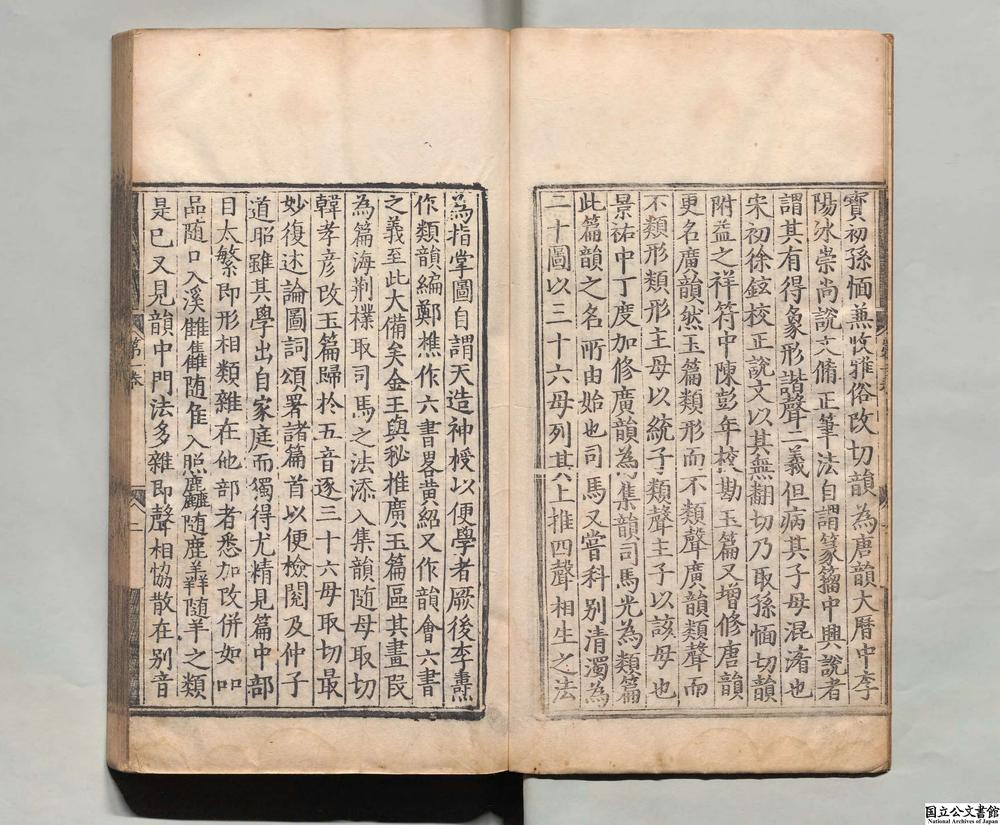 寳初孫愐兼收雅俗改切韻為唐韻大曆中李
陽冰崇尚說文脩正筆法自謂篆籀中興說者
謂其有得象形諧聲二義但病其子母混淆也
宋初徐鉉校正說文以其無翻切乃取孫愐切韻
附益之祥符中陳彭年校勘玉篇又增修唐韻
更名廣韻然玉篇類形而不類聲廣韻類聲而
不類形類形主母以統子類聲主子以該母也
景祐中丁度加修廣韻為集韻司馬光為類篇
此篇韻之名所由始也司馬又嘗科别清濁為
二十圖以三十六母列其上推四聲相生之法
為指掌圖自謂天造神授以便學者厥後李燾
作類韻編鄭樵作六書畧黄紹又作韻會六書
之義至此大備矣金王與秘推廣玉篇區其畫段
為篇海荆樸取司馬之法添入集韻随母取切
韓孝彦改玉篇歸於五音逐三十六母取切最
妙復述論圖詞頌署諸篇首以便檢閱及仲子
道昭雖其學出自家庭而獨得尤精見篇中部
目太繁即形相類雜在他部者悉加改併如吅
品随口入溪雔雥随隹入照麤随鹿羴随羊之類
是已又見韻中門法多雜即聲相恊散在别音
第一卷
二
国立公文書館
National Archives of Japan